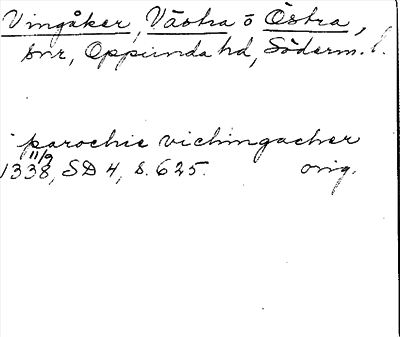 Vingåker, Västra o Östra,
snr, Oppunda hd, Söderm. l.
parochie vichingacher
11/9
1338, SD 4, s. 625. orig.